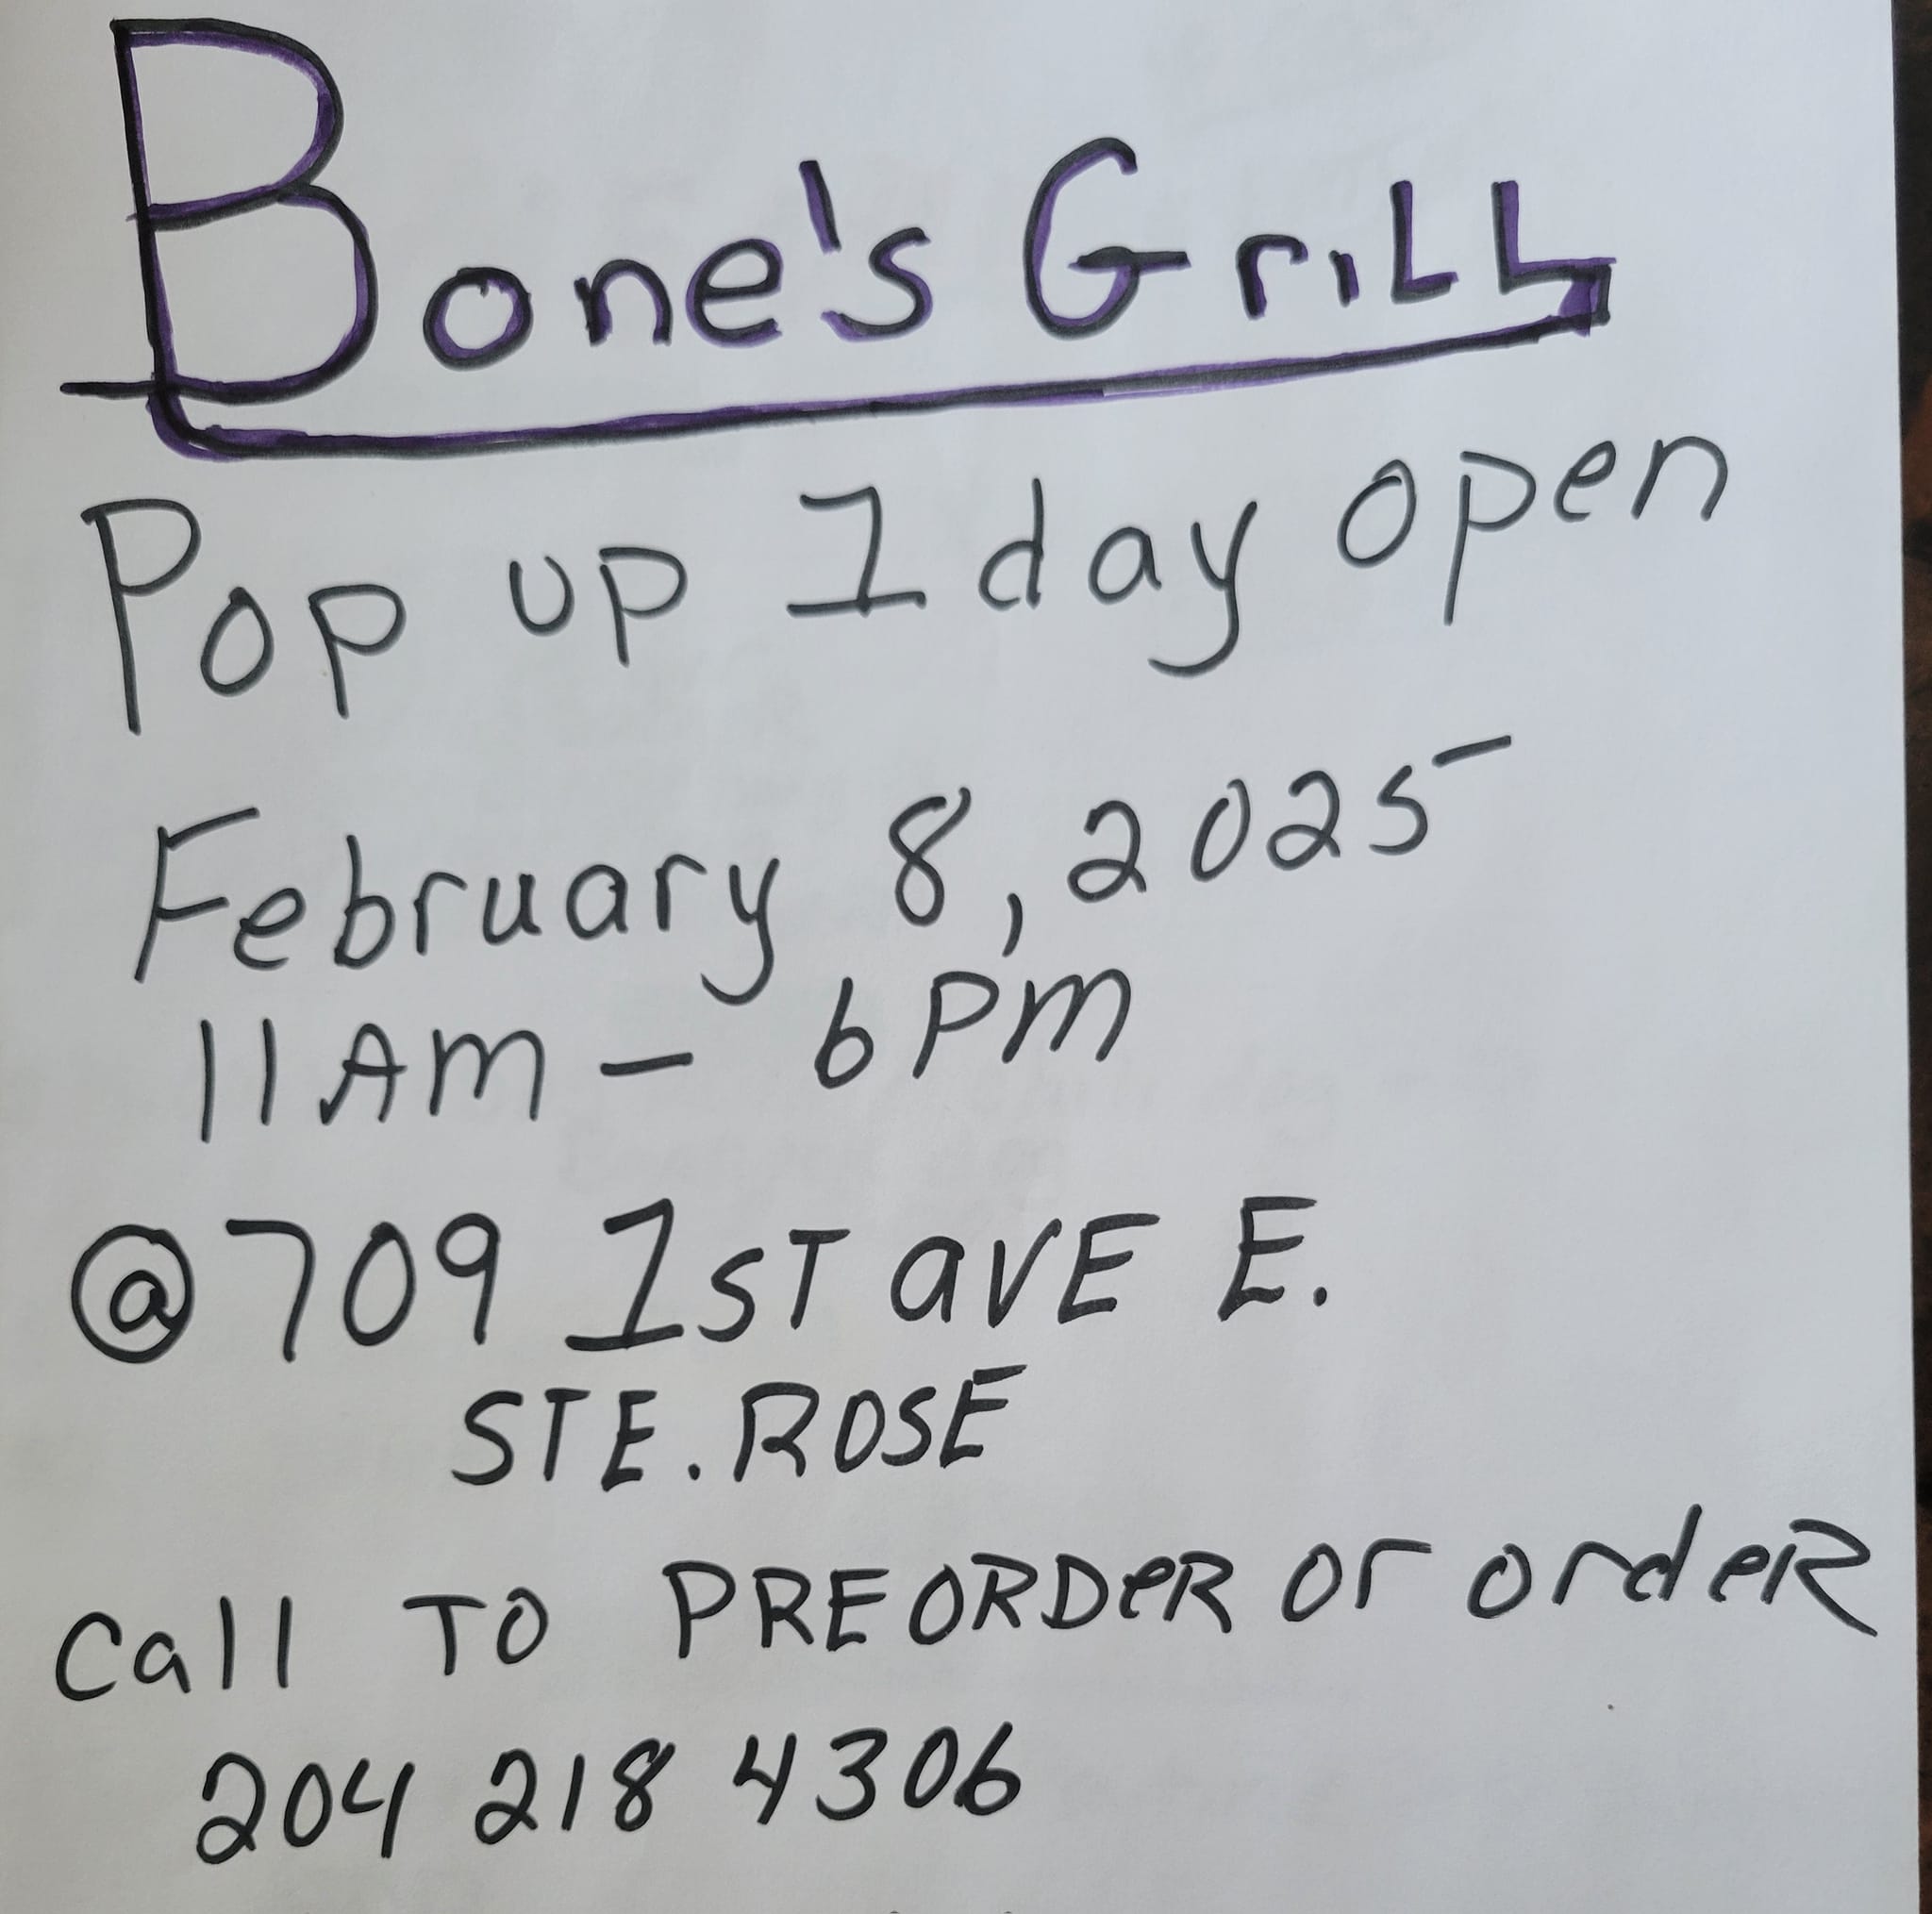 Bone's GriLL
Pop up 1 day open
February 8, 2025
11 AM - 6 Pm
@ 709 1sT avE E.
STE. ROSE
call TO PREORDeR or ordeR
204 218 4306